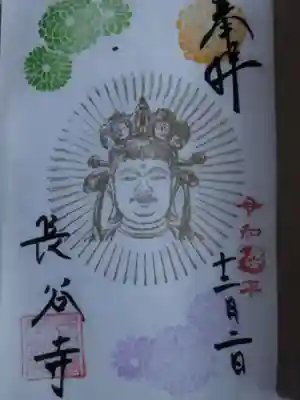 奉拝
令和元年
十二月二日
長谷寺